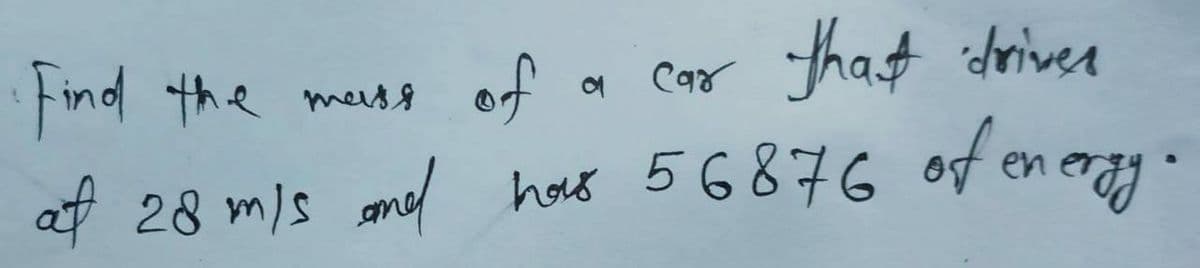 Find the mass of a car that drives
at 28 m/s and has 56876 of energy.